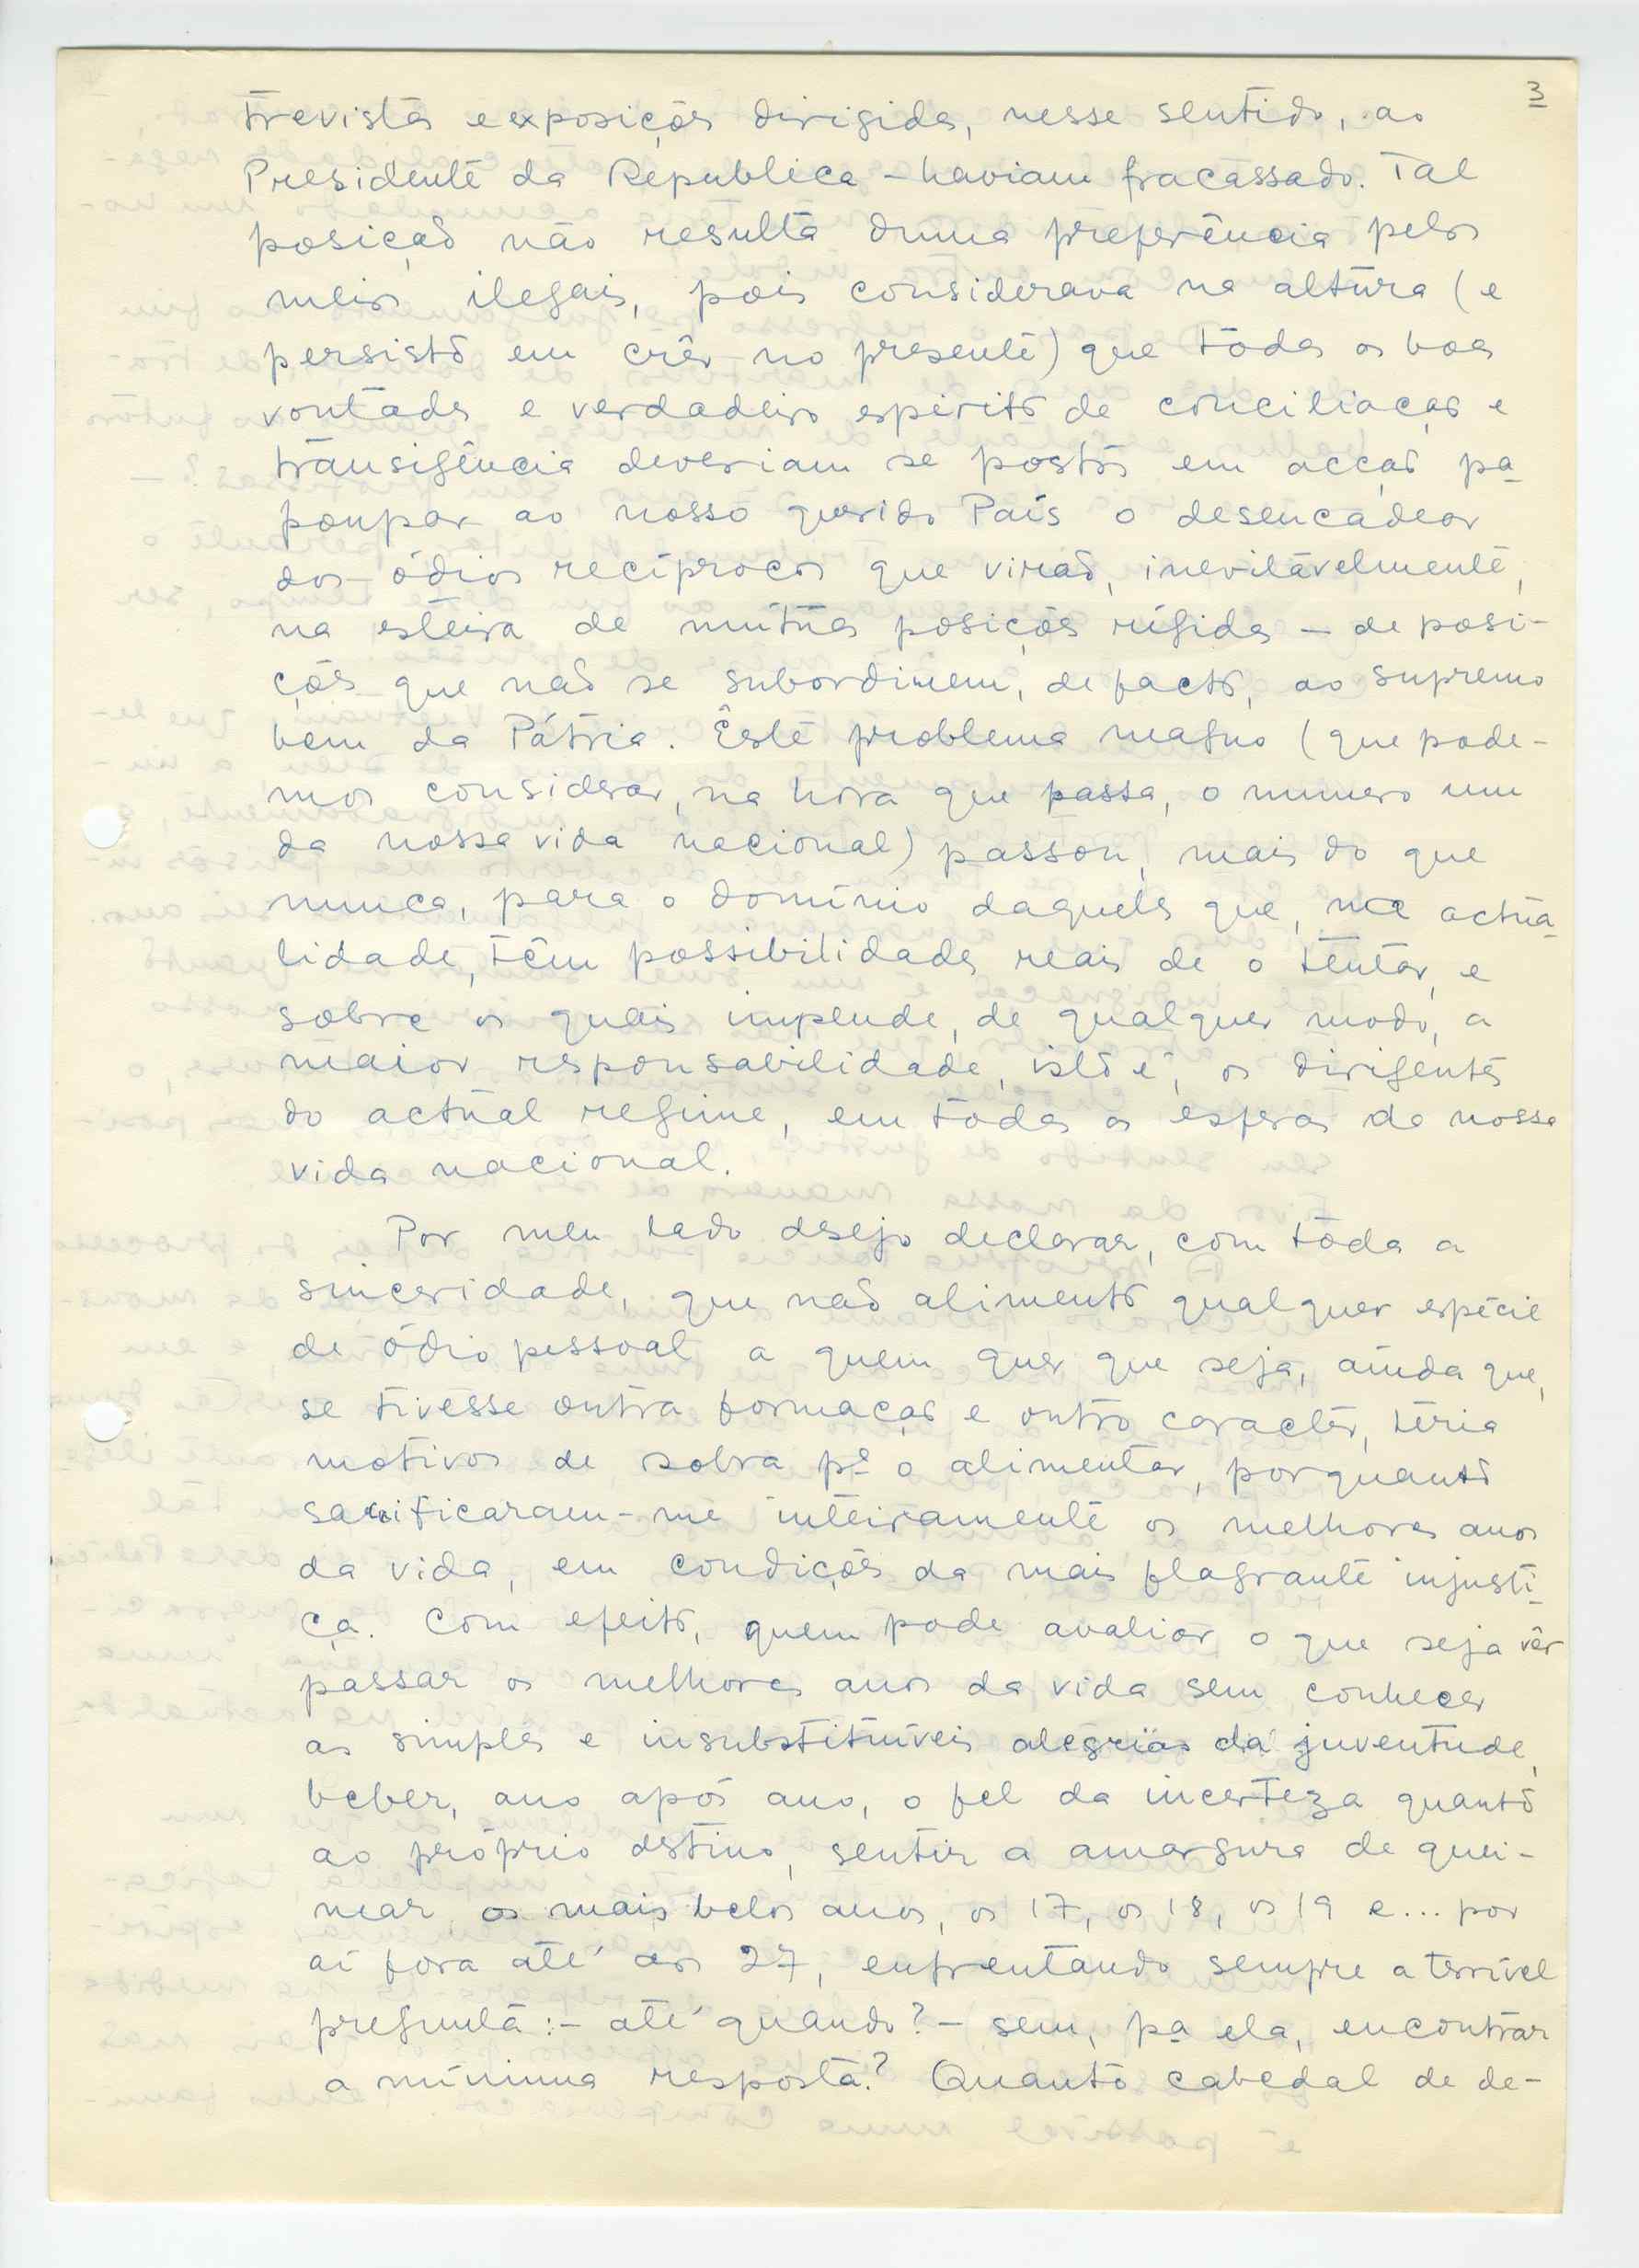 3
trevistas e exposições dirigidas, nesse sentido, ao
Presidente da Republica – haviam fracassado. Tal
posição não resulta duma preferência pelos
meios ilegais, pois considerava na altura (e
persisto em crêr no presente) que tôdas as boas
vontades e verdadeiro espirito de conciliação e
transigência deveriam se postos em acção pa
poupar ao nosso querido País o desencadear
dos ódios recíprocos que virão, inevitávelmente,
na esteira de mútuas posições rígidas – de posi-
ções que não se subordinem, de facto, ao supremo
bem da Pátria. Êste problema magno (que pode-
mos considerar, na hora que passa, o numero um
da nossa vida nacional) passou, mais do que
nunca, para o domínio daqueles que, na actua
lidade, têm possibilidades reais de o tentar, e
sobre os quais impende, de qualquer modo, a
maior responsabilidade, isto é, os dirigentes
do actual regime, em todas as esferas da nossa
vida nacional.
Por meu lado desejo declarar, com tôda a
sinceridade, que não alimento qualquer espécie
de ódio pessoal a quem quer que seja, ainda que,
se tivesse outra formação e outro caracter, teria
motivos de sobra pª o alimentar, porquanto
sacrificaram-me inteiramente os melhores anos
da vida, em condições da mais flagrante injusti
ça. Com efeito, quem pode avaliar o que seja vêr
passar os melhores anos da vida sem conhecer
as simples e insubstituíveis alegrias da juventude,
beber, ano após ano, o fel da incerteza quanto
ao próprio destino, sentir a amargura de quei-
mar os mais belos anos, os 17, os 18, os 19 e... por
aí fora até aos 27, enfrentando sempre a terrível
pregunta: – até quando? – sem, pa ela, encontrar
a mínima resposta? Quanto cabedal de de-